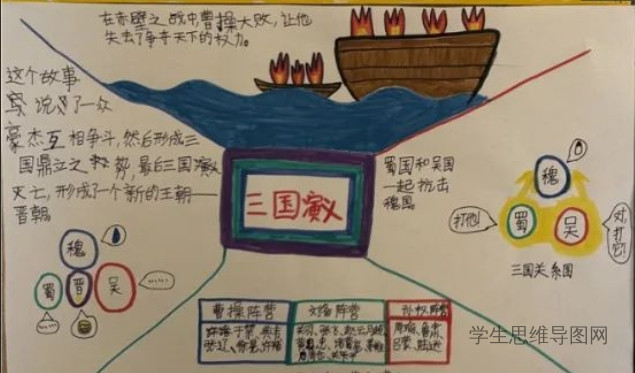 在赤壁之战中曹操大败,让他
失去了争夺天下的权力。
这个故事
说了一众
豪杰互相争斗,然后形成三
国鼎立之势,最后三国演义
灭亡,形成了一个新的王朝——
晋朝
三国演义
蜀国和吴国
一起抗击
魏国
魏
打他!
蜀
吴
对,打它!
三国关系图
魏
蜀
晋
吴
曹操阵营
刘备阵营
孙权阵营
张辽
关羽、张飞、赵云
周瑜、鲁肃
吕蒙、陆逊
学生思维导图网